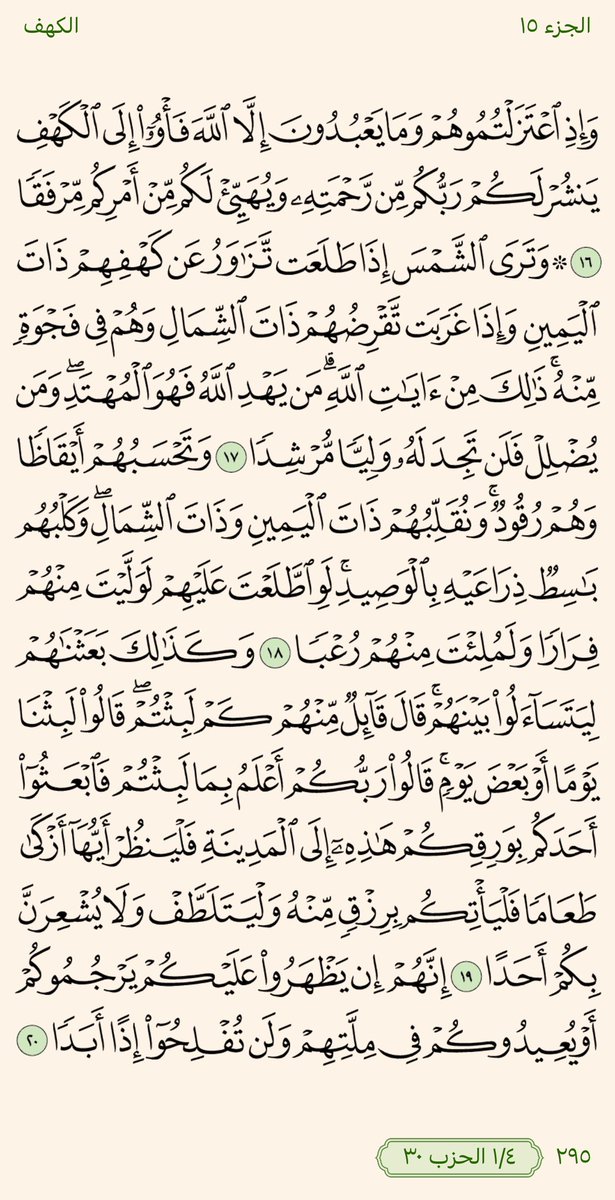 الجزء ١٥ الكهف
وَإِذِ ٱعْتَزَلْتُمُوهُمْ وَمَا يَعْبُدُونَ إِلَّا ٱللَّهَ فَأْوُۥٓا۟ إِلَى ٱلْكَهْفِ
يَنشُرْ لَكُمْ رَبُّكُم مِّن رَّحْمَتِهِۦ وَيُهَيِّئْ لَكُم مِّنْ أَمْرِكُم مِّرْفَقًا
١٦ ۞ وَتَرَى ٱلشَّمْسَ إِذَا طَلَعَت تَّزَٰوَرُ عَن كَهْفِهِمْ ذَاتَ
ٱلْيَمِينِ وَإِذَا غَرَبَت تَّقْرِضُهُمْ ذَاتَ ٱلشِّمَالِ وَهُمْ فِى فَجْوَةٍ
مِّنْهُ ۚ ذَٰلِكَ مِنْ ءَايَٰتِ ٱللَّهِ ۗ مَن يَهْدِ ٱللَّهُ فَهُوَ ٱلْمُهْتَدِ ۖ وَمَن
يُضْلِلْ فَلَن تَجِدَ لَهُۥ وَلِيًّا مُّرْشِدًا ١٧ وَتَحْسَبُهُمْ أَيْقَاظًا
وَهُمْ رُقُودٌ ۚ وَنُقَلِّبُهُمْ ذَاتَ ٱلْيَمِينِ وَذَاتَ ٱلشِّمَالِ ۖ وَكَلْبُهُم
بَٰسِطٌ ذِرَاعَيْهِ بِٱلْوَصِيدِ ۚ لَوِ ٱطَّلَعْتَ عَلَيْهِمْ لَوَلَّيْتَ مِنْهُمْ
فِرَارًا وَلَمُلِئْتَ مِنْهُمْ رُعْبًا ١٨ وَكَذَٰلِكَ بَعَثْنَٰهُمْ
لِيَتَسَآءَلُوا۟ بَيْنَهُمْ ۚ قَالَ قَآئِلٌ مِّنْهُمْ كَمْ لَبِثْتُمْ ۖ قَالُوا۟ لَبِثْنَا
يَوْمًا أَوْ بَعْضَ يَوْمٍ ۚ قَالُوا۟ رَبُّكُمْ أَعْلَمُ بِمَا لَبِثْتُمْ فَٱبْعَثُوٓا۟
أَحَدَكُم بِوَرِقِكُمْ هَٰذِهِۦٓ إِلَى ٱلْمَدِينَةِ فَلْيَنظُرْ أَيُّهَآ أَزْكَىٰ
طَعَامًا فَلْيَأْتِكُم بِرِزْقٍ مِّنْهُ وَلْيَتَلَطَّفْ وَلَا يُشْعِرَنَّ
بِكُمْ أَحَدًا ١٩ إِنَّهُمْ إِن يَظْهَرُوا۟ عَلَيْكُمْ يَرْجُمُوكُمْ
أَوْ يُعِيدُوكُمْ فِى مِلَّتِهِمْ وَلَن تُفْلِحُوٓا۟ إِذًا أَبَدًا ٢٠
٢٩٥ ١/٤ الحزب ٣٠